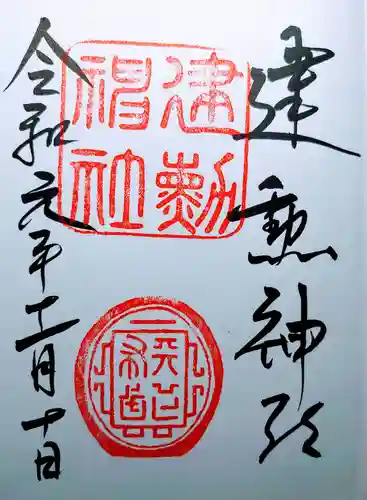 建勲神社
令和元年十一月十日
建勲
神社
天下布武